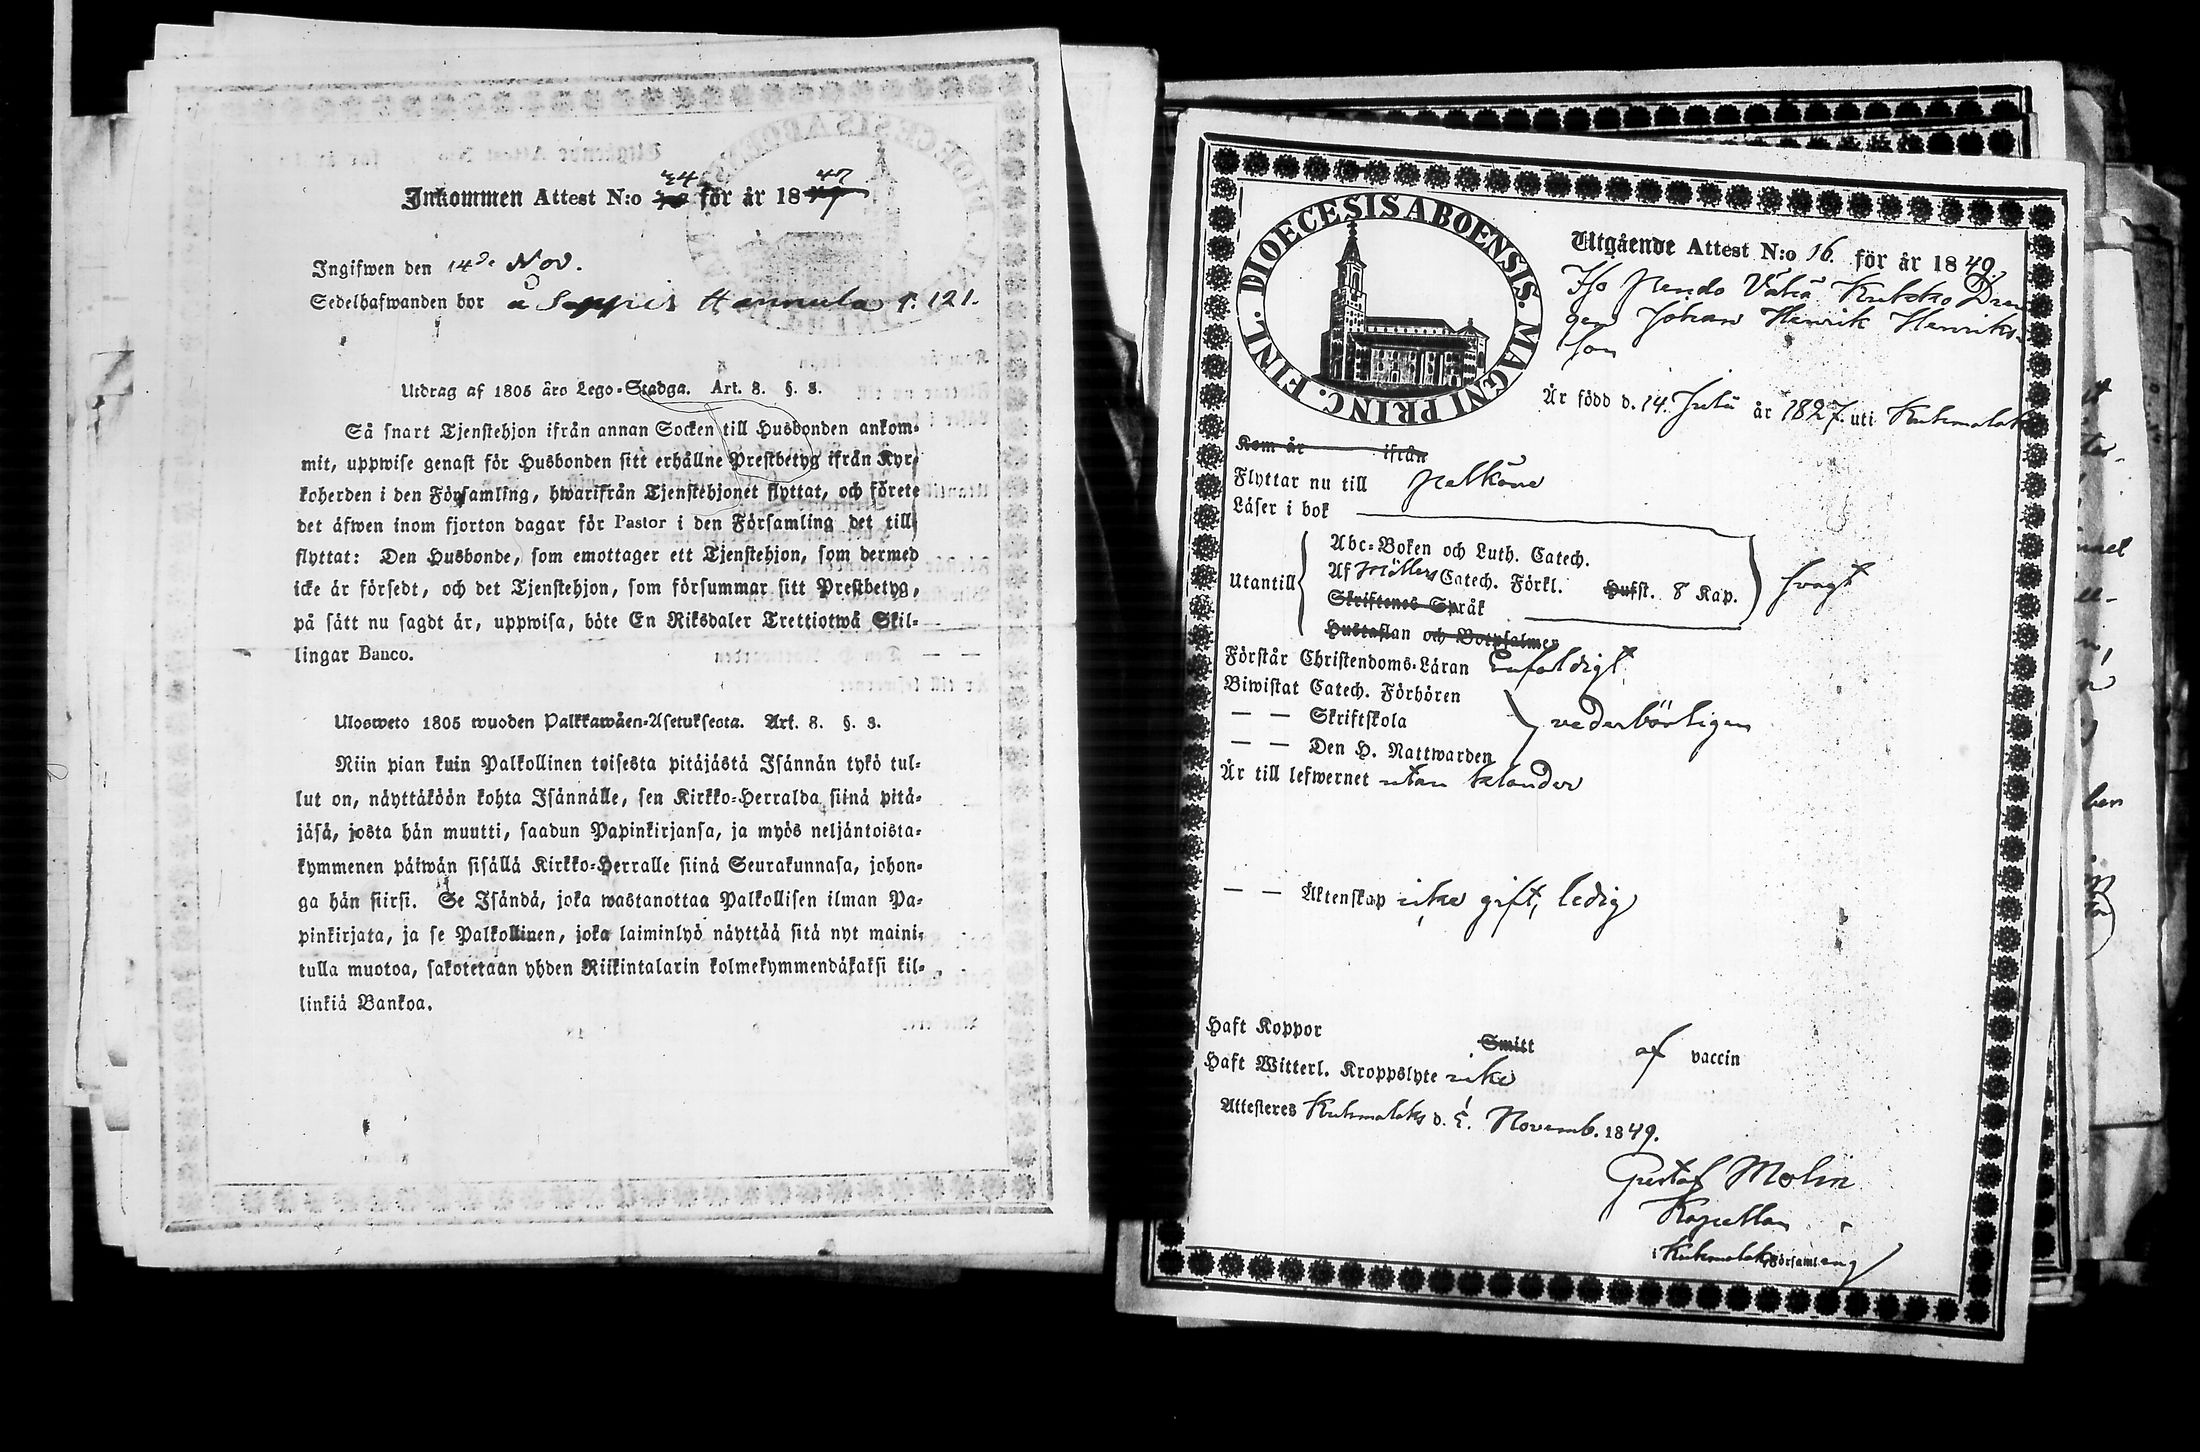 Inkommen Attest N:o 34 för år 1847
Ingifwen den 14de Nov.
Sedelhafwanden bor å Seppis Hannula p. 121.
Utdrag af 1805 års Lego-Stadga. Art. 8. §. 3.
Så snart Tjenstehjon ifrån annan Socken till Husbonden ankom-
mit, uppwise genast för Husbonden sitt erhållne Prestbetyg ifrån Kyr-
koherden i den Församling, hwarifrån Tjenstehjonet flyttat, och förete
det äfwen inom fjorton dagar för Pastor i den Församling det till-
flyttat: Den Husbonde, som emottager ett Tjenstehjon, som dermed
icke är försedt, och det Tjenstehjon, som försummar sitt Prestbetyg,
på sätt nu sagdt är, uppwisa, böte En Riksdaler Trettiotwå Skil-
lingar Banco.
Ulosweto 1805 wuoden Palkkawäen-Asetuksesta. Art. 8. §. 3.
Niin pian kuin Palkollinen toisesta pitäjästä Isännän tykö tul-
lut on, näyttäköön kohta Isännälle, sen Kirkko-Herralda siinä pitä-
jäsä, josta hän muutti, saadun Papinkirjansa, ja myös neljäntoista-
kymmenen päiwän sisällä Kirkko-Herralle siinä Seurakunnasa, johon-
ga hän siirsi. Se Isändä, joka wastanottaa Palkollisen ilman Pa-
pinkirjata, ja se Palkollinen, joka laiminlyö näyttää sitä nyt maini-
tulla muotoa, sakotetaan yhden Riikintalarin kolmekymmendäkaksi kil-
linkiä Bankoa.
DIOECESIS ABOENSIS. MAGNI PRINC. FINL.
Utgående Attest N:o 16. för år 1849.
Iso Pendo Vähä Kuhko Dren
gen Johan Henrik Henriks-
son
Är född d. 14. Julii år 1827. uti Kuhmalaks
Kom år ifrån
Flyttar nu till Pelkäne
Läser i bok
Utantill
Abc-Boken och Luth. Catech.
Af Möllers Catech. Förkl. Hufst. 8 Kap. svagt
Skriftenes Språk
Hustaflan och Botpsalmen
Förstår Christendoms-Läran enfaldigt
Biwistat Catech. Förhören
— — Skriftskola vederbörligen
— — Den H. Nattwarden
Är till lefwernet utan klander
— — Äktenskap icke gift, ledig
Haft Koppor Smitt af vaccin
Haft Witterl. Kroppslyte icke
Attesteres Kuhmalaks d. Novemb. 1849.
Gustaf Molin
Kapellan
i Kuhmalaks Församling